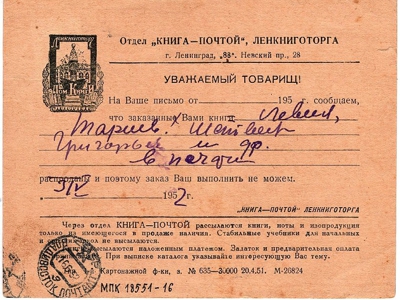 Отдел „КНИГА—ПОЧТОЙ“, ЛЕНКНИГОТОРГА
г. Ленинград, „88“. Невский пр., 28
УВАЖАЕМЫЙ ТОВАРИЩ!
На Ваше письмо от 195 г. сообщаем,
что заказанные Вами книги
Григорьев и др.
распроданы и поэтому заказ Ваш выполнить не можем.
195 г.
„КНИГА—ПОЧТОЙ“ ЛЕНКНИГОТОРГА
Через отдел КНИГА—ПОЧТОЙ рассылаются книги, ноты и изопродукция
только на имеющегося в продаже наличия. Стабильные учебники для начальных
и школ не высылаются.
высылаются наложенным платежом. Задаток и предварительная оплата
При выписке каталога указывайте интересующую Вас тему.
Картонажной ф-ки, в. № 635—30000 20.4.51. М-26824
МПК 13551-16